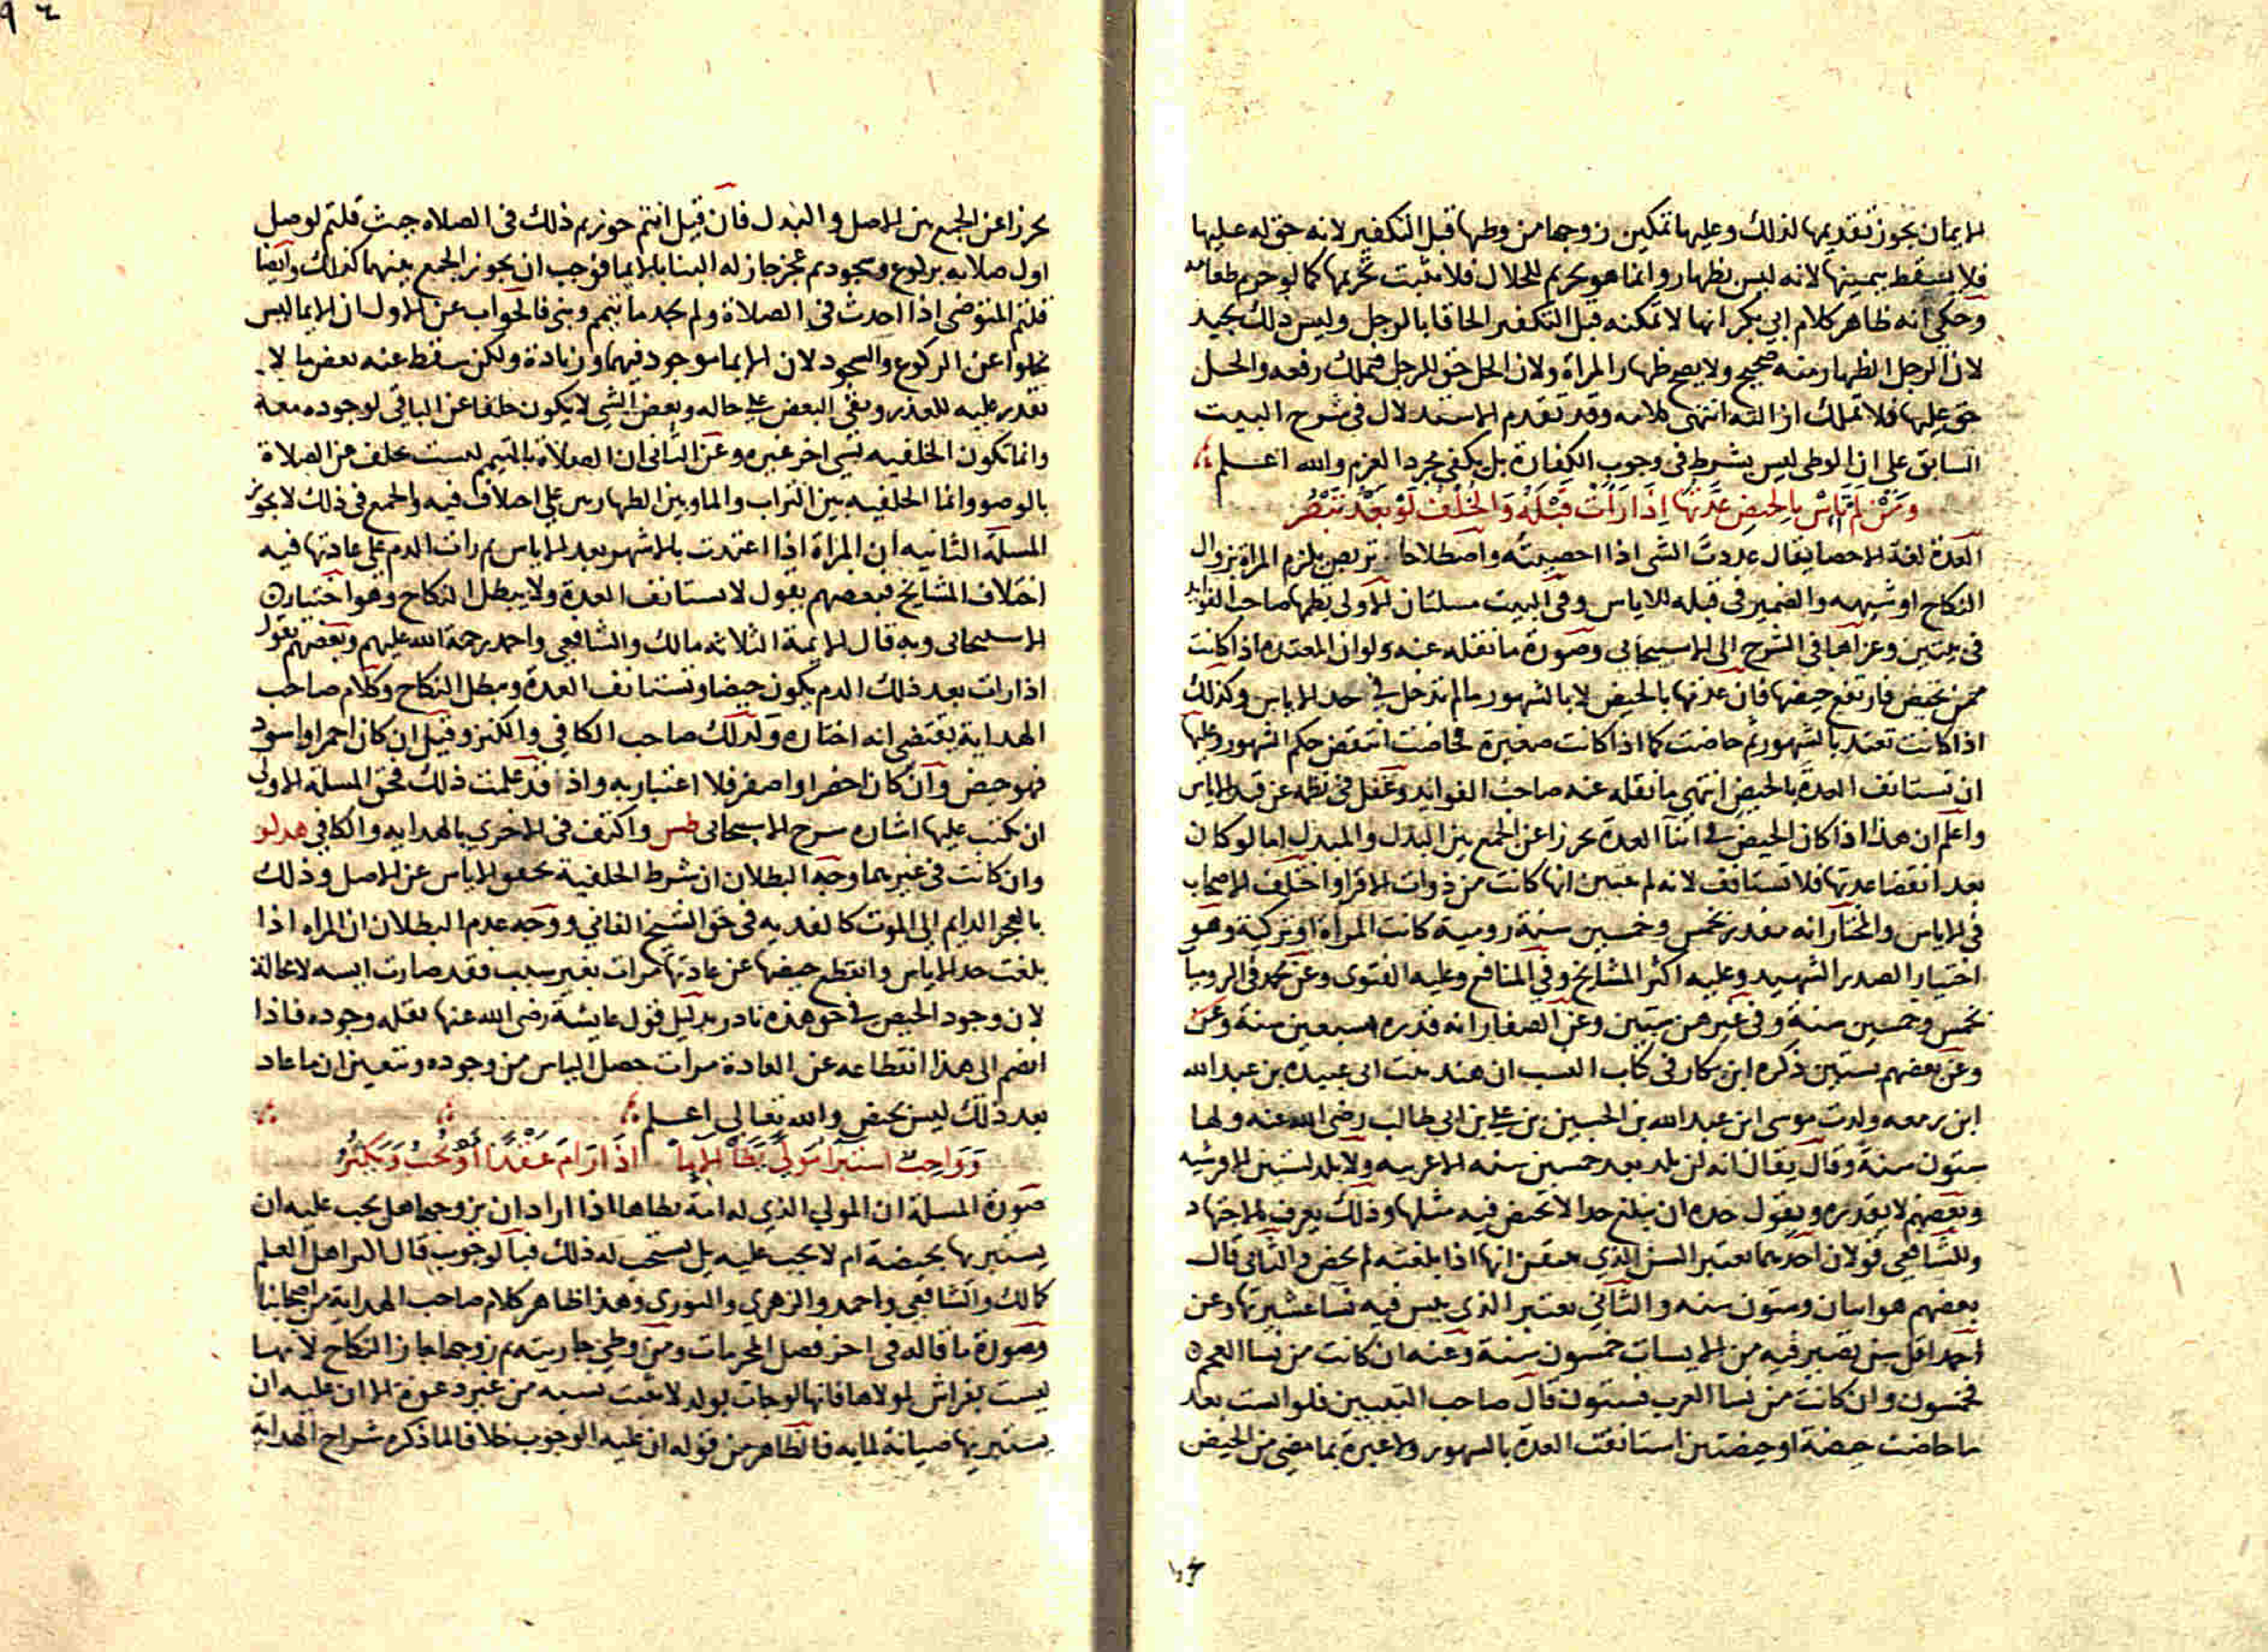 الايمان يجوز تقديمها لذلك وعليها تمكين زوجها من وطها قبل التكفير لانه حق له عليها
فلا يسقط بيمينها لانه ليس بظهار وانما هو تحريم للحلال فلا يثبت تحريمها كما لو حرم طعامه
وحكي انه ظاهر كلام ابي بكر انها لا تمكنه قبل التكفير الحاقا بالرجل وليس ذلك بجيد
لان الرجل الظهار منه صحيح ولا يصح ظهار المراة ولان الحل حق للرجل فيملك رفعه والحل
حق عليها فلا تملك ازالته انتهى كلامه وقد تقدم الاستدلال في شرح البيت
السابق على ان الوطى ليس بشرط في وجوب الكفارة بل يكفي مجرد العزم والله اعلم
ومن لم تماس بالحيض عدتها اذا رات قبله والخلف لو بعد تبصر
العدة لغة الاحصا يقال عددت الشى اذا احصيته واصطلاحا تربص يلزم المراة بزوال
النكاح او شبهه والضمير في قبله للاياس وفي البيت مسلتان الاولى نظمها صاحب الفوايد
في بيتين وعزاها في الشرح الى الاسبيجابي وصورة ما نقله عنه ولو ان المعتده اذا كانت
ممن تحيض فارتفع حيضها فان عدتها بالحيض لا بالشهور ما لم تدخل في حد الاياس وكذلك
اذا كانت تعتد بالشهور ثم حاضت كما اذا كانت صغيرة فحاضت انتقض حكم الشهور وعليها
ان تستانف العدة بالحيض انتهى ما نقله عنه صاحب الفوايد وغفل في نظمه عن قيد الاياس
واعلم ان هذا اذا كان الحيض في اثنا العدة تحرزا عن الجمع بين البدل والمبدل اما لو كان
بعد انقضا عدتها فلا تستانف لانه لم يتبين انها كانت من ذوات الاقرا واختلف الاصحاب
في الاياس والمختار انه مقدر بخمس وخمسين سنة رومية كانت المراة او تركية وهو
اختيار الصدر الشهيد وعليه اكثر المشايخ وفي المنافع وعليه الفتوى وعن محمد في الروميا
بخمس وخمسين سنة وفي غيرهن ستين وعن الصفار انه قدره بسبعين سنة وعن
وعن بعضهم بستين ذكره ابن بكار في كتاب النسب ان هند بنت ابي عبيدة بن عبد الله
ابن زمعه ولدت موسى ابن عبد الله بن الحسين بن علي بن ابي طالب رضى الله عنه ولها
ستون سنة وقال يقال انه لن يلد بعد خمسين سنه الا عربيه ولا يلد لستين الا قرشيه
وبعضهم لا يقدره ويقول حده ان يبلغ حدا لا تحيض فيه مثلها وذلك يعرف بالاجتهاد
وللشافعي قولان احدهما يعتبر السن الذي يتيقن انها اذا بلغته لم تحض والثاني قال
بعضهم هو اثنان وستون سنه والثاني يعتبر الذى ييس فيه نسا عشيرتها وعن
احمد اقل سن تصير فيه من الايسات خمسون سنة وعنه ان كانت من نسا العجم
فخمسون وان كانت من نسا العرب فستون قال صاحب التبيين فلو ايست بعد
ما حاضت حيضة او حيضتين استانفت العدة بالشهور ولا عبرة بما مضى من الحيض
تحرزا عن الجمع بين الاصل والبدل فان قيل انتم جوزتم ذلك في الصلاه حيث قلتم لو صلى
اول صلاته بركوع وسجود ثم عجز جاز له البنا بالايما فوجب ان يجوز الجمع بينهما كذلك وايضا
قلتم المتوضى اذا احدث في الصلاة ولم يجد ما تيمم وبنى فالجواب عن الاول ان الايما ليس
خلفا عن الركوع والسجود لان الايما موجود فيهما وزيادة ولكن سقط عنه بعض ما لا
يقدر عليه للعذر وبقي البعض على حاله وبعض الشى لا يكون خلفا عن الباقي لوجوده معه
وانما تكون الخلفيه بشى اخر غيره وعن الثانى ان الصلاة بالتيمم ليست بخلف عن الصلاة
بالوضو وانما الخلفيه بين التراب والما وبين الطهارتين على اختلاف فيه والجمع في ذلك لا يجوز
المسلة الثانيه ان المراة اذا اعتدت بالاشهر بعد الاياس ثم رات الدم على عادتها فيه
اختلاف المشايخ فبعضهم يقول لا تستانف العدة ولا يبطل النكاح وهو اختيار
الاسبيجابى وبه قال الايمة الثلاثه مالك والشافعي واحمد رحمة الله عليهم وبعضهم يقول
اذا رات بعد ذلك الدم يكون حيضا وتستانف العدة ويبطل النكاح وكلام صاحب
الهداية يقتضى انه اختاره وكذلك صاحب الكافي والكنز وقيل ان كان احمر او اسود
فهو حيض وان كان اخضر او اصفر فلا اعتبار به واذا قد علمت ذلك فحق المسلة الاولى
ان نكتب عليها اشاره شرح الاسبيجابى طس واكتفى في الاخرى بالهدايه والكافي هد لو
وان كانت في غيرهما وجه البطلان ان شرط الخلفية تحقق الاياس عن الاصل وذلك
بالعجز الدايم الى الموت كالفديه في حق الشيخ الفاني ووجه عدم البطلان ان المراه اذا
بلغت حد الاياس وانقطع حيضها عن عادتها مرات بغير سبب فقد صارت ايسه لا محالة
لان وجود الحيض في حق هذه نادر بدليل قول عايشة رضى الله عنها بقله وجوده فاذا
انضم الى هذا انقطاعه عن العادة مرات حصل الياس من وجوده وتعين ان ما عاد
بعد ذلك ليس بحيض والله تعالى اعلم
وواجب استبرا مولى يطا الاما اذا رام عقدا او يحب ويكثر
صورة المسلة ان المولى الذى له امة يطاها اذا اراد ان يزوجها هل يجب عليه ان
يستبريها بحيضة ام لا يجب عليه بل يستحب له ذلك فبالوجوب قال اكثر اهل العلم
كمالك والشافعي واحمد والزهري والثوري وهذا ظاهر كلام صاحب الهداية من اصحابنا
وصورة ما قاله في اخر فصل المحرمات ومن وطي جاريته ثم زوجها جاز النكاح لانها
ليست بفراش لمولاها فانها لو جات بولد لا يثبت نسبه من غير دعوة الا ان عليه ان
يستبريها صيانة لمايه فالظاهر من قوله ان عليه الوجوب خلافا لما ذكره شراح الهدايه